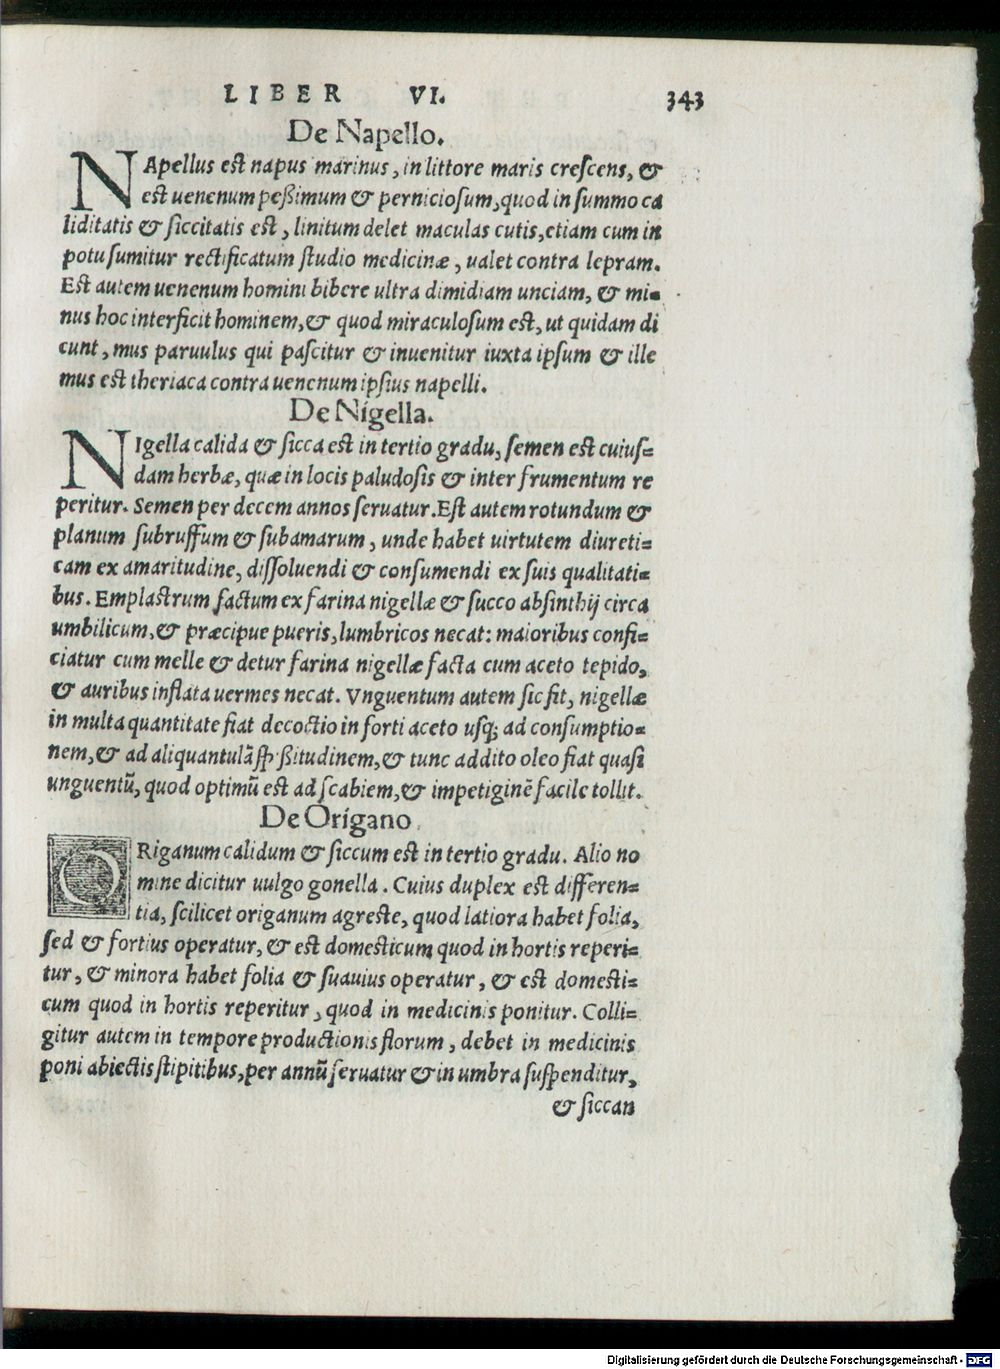 LIBER VI. 343
De Napello.
NApellus est napus marinus, in littore maris crescens, &
est uenenum peßimum & perniciosum, quod in summo ca
liditatis & siccitatis est, linitum delet maculas cutis, etiam cum in
potu sumitur rectificatum studio medicinæ, ualet contra lepram.
Est autem uenenum homini bibere ultra dimidiam unciam, & mi-
nus hoc interficit hominem, & quod miraculosum est, ut quidam di
cunt, mus paruulus qui pascitur & inuenitur iuxta ipsum & ille
mus est theriaca contra uenenum ipsius napelli.
De Nigella.
NIgella calida & sicca est in tertio gradu, semen est cuius=
dam herbæ, quæ in locis paludosis & inter frumentum re
peritur. Semen per decem annos seruatur. Est autem rotundum &
planum subruffum & subamarum, unde habet uirtutem diureti=
cam ex amaritudine, dissoluendi & consumendi ex suis qualitati=
bus. Emplastrum factum ex farina nigellæ & succo absinthij circa
umbilicum, & præcipue pueris, lumbricos necat: maioribus confi=
ciatur cum melle & detur farina nigellæ facta cum aceto tepido,
& auribus inflata uermes necat. Vnguentum autem sic fit, nigellæ
in multa quantitate fiat decoctio in forti aceto usq; ad consumptio=
nem, & ad aliquantulã spißitudinem, & tunc addito oleo fiat quasi
unguentũ, quod optimũ est ad scabiem, & impetiginẽ facile tollit.
De Origano.
ORiganum calidum & siccum est in tertio gradu. Alio no
mine dicitur uulgo gonella. Cuius duplex est differen=
tia, scilicet origanum agreste, quod latiora habet folia,
sed & fortius operatur, & est domesticum quod in hortis reperi=
tur, & minora habet folia & suauius operatur, & est domesti=
cum quod in hortis reperitur, quod in medicinis ponitur. Colli=
gitur autem in tempore productionis florum, debet in medicinis
poni abiectis stipitibus, per annũ seruatur & in umbra suspenditur,
& siccan
Digitalisierung gefördert durch die Deutsche Forschungsgemeinschaft - DFG